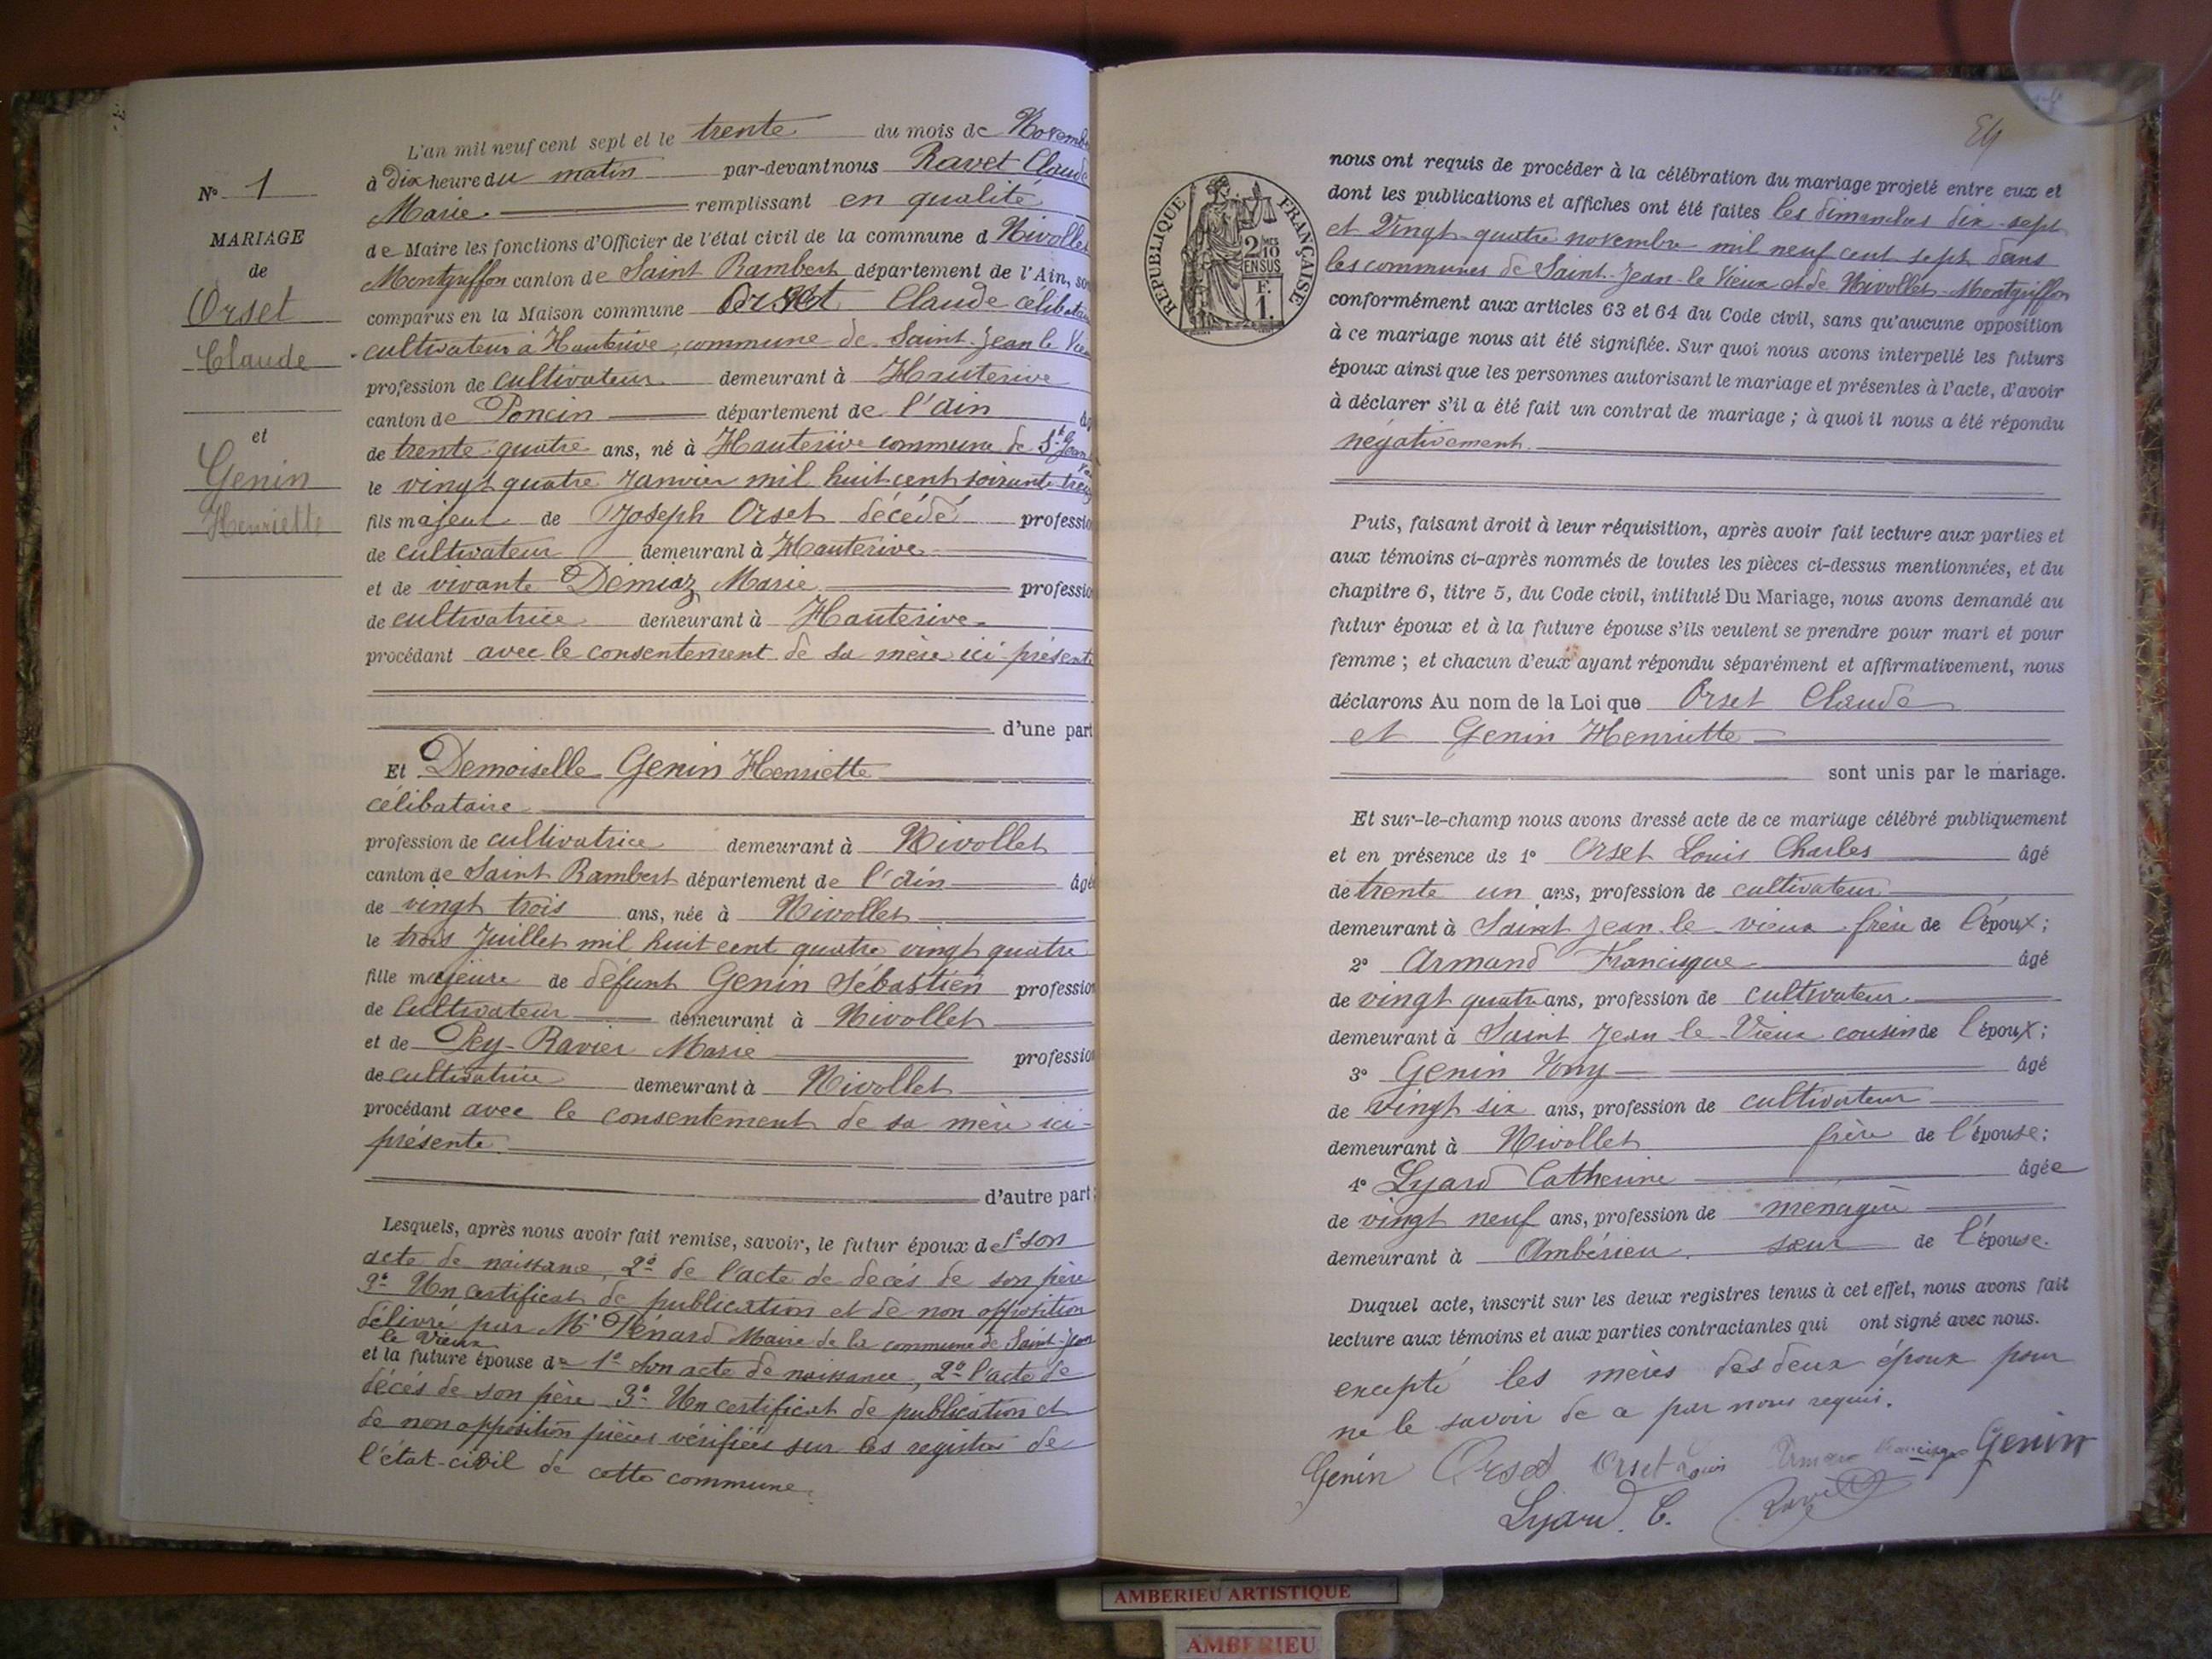 N° 1
MARIAGE
de
Orset
Claude
et
Genin
Henriette
L'an mil neuf cent sept et le trente du mois de Novembre
à dix heure du matin par-devant nous Ravet Claude
Marie. remplissant en qualité
de Maire les fonctions d'Officier de l'état civil de la commune d Nivollet
Montgriffon canton de Saint Rambert département de l'Ain, son
comparus en la Maison commune Orset Claude célibataire
cultivateur à Hauterive, commune de Saint-Jean le Vieux
profession de cultivateur demeurant à Hauterive
canton de Poncin département de l'ain âg
de trente quatre ans, né à Hauterive commune de St Jean l
Vieux
le vingt quatre Janvier mil huit cent soixante treize
fils majeur de Joseph Orset décédé professio
de cultivateur demeurant à Hauterive
et de vivante Démiaz Marie professio
de cultivatrice demeurant à Hauterive
procédant avec le consentement de sa mère ici présente
d'une part
Et Demoiselle Genin Henriette
célibataire
profession de cultivatrice demeurant à Nivollet
canton de Saint Rambert département de l'ain âgé
de vingt trois ans, née à Nivollet
le trois Juillet mil huit cent quatre vingt quatre
fille majeure de défunt Genin Sébastien profession
de cultivateur demeurant à Nivollet
et de Pey-Ravier Marie profession
de cultivatrice demeurant à Nivollet
procédant avec le consentement de sa mère ici-
présente.
d'autre part;
Lesquels, après nous avoir fait remise, savoir, le futur époux de 1° son
acte de naissance, 2° de l'acte de decés de son père
3° Un certificat de publication et de non opposition
délivré par Mr Pénard Maire de la commune de Saint-Jean
le Vieux
et la future épouse de 1° Son acte de naissance, 2° l'acte de
décés de son père 3° Un certificat de publication et
de non opposition pièces vérifiées sur les registres de
l'état-civil de cette commune.
REPUBLIQUE FRANÇAISE
2/10 MES
EN SUS
F.
1.
nous ont requis de procéder à la célébration du mariage projeté entre eux et
dont les publications et affiches ont été faites les dimanches dix-sept
et Vingt-quatre novembre mil neuf cent sept dans
les communes de Saint-Jean-le Vieux et de Nivollet-Montgriffon
conformément aux articles 63 et 64 du Code civil, sans qu'aucune opposition
à ce mariage nous ait été signifiée. Sur quoi nous avons interpellé les futurs
époux ainsi que les personnes autorisant le mariage et présentes à l'acte, d'avoir
à déclarer s'il a été fait un contrat de mariage ; à quoi il nous a été répondu
négativement.
Puis, faisant droit à leur réquisition, après avoir fait lecture aux parties et
aux témoins ci-après nommés de toutes les pièces ci-dessus mentionnées, et du
chapitre 6, titre 5, du Code civil, intitulé Du Mariage, nous avons demandé au
futur époux et à la future épouse s'ils veulent se prendre pour mari et pour
femme ; et chacun d'eux ayant répondu séparément et affirmativement, nous
déclarons Au nom de la Loi que Orset Claude
et Genin Henriette
sont unis par le mariage.
Et sur-le-champ nous avons dressé acte de ce mariage célébré publiquement
et en présence de 1° Orset Louis Charles âgé
de trente un ans, profession de cultivateur
demeurant à Saint Jean-le vieux frère de l'époux;
2° Armand Francisque âgé
de vingt quatre ans, profession de cultivateur
demeurant à Saint Jean le Vieux cousin de l'époux;
3° Genin Tony âgé
de vingt six ans, profession de cultivateur
demeurant à Nivollet frère de l'épouse;
4° Lyard Catherine âgée
de vingt neuf ans, profession de ménagère
demeurant à Ambérieu. sœur de l'épouse.
Duquel acte, inscrit sur les deux registres tenus à cet effet, nous avons fait
lecture aux témoins et aux parties contractantes qui ont signé avec nous.
excepté les mères des deux époux pour
ne le savoir de a par nous requis.
Genin Orset Orset Louis Armand Francisque Genin
Lyard. C. Ravet
AMBERIEU ARTISTIQUE
AMBERIEU